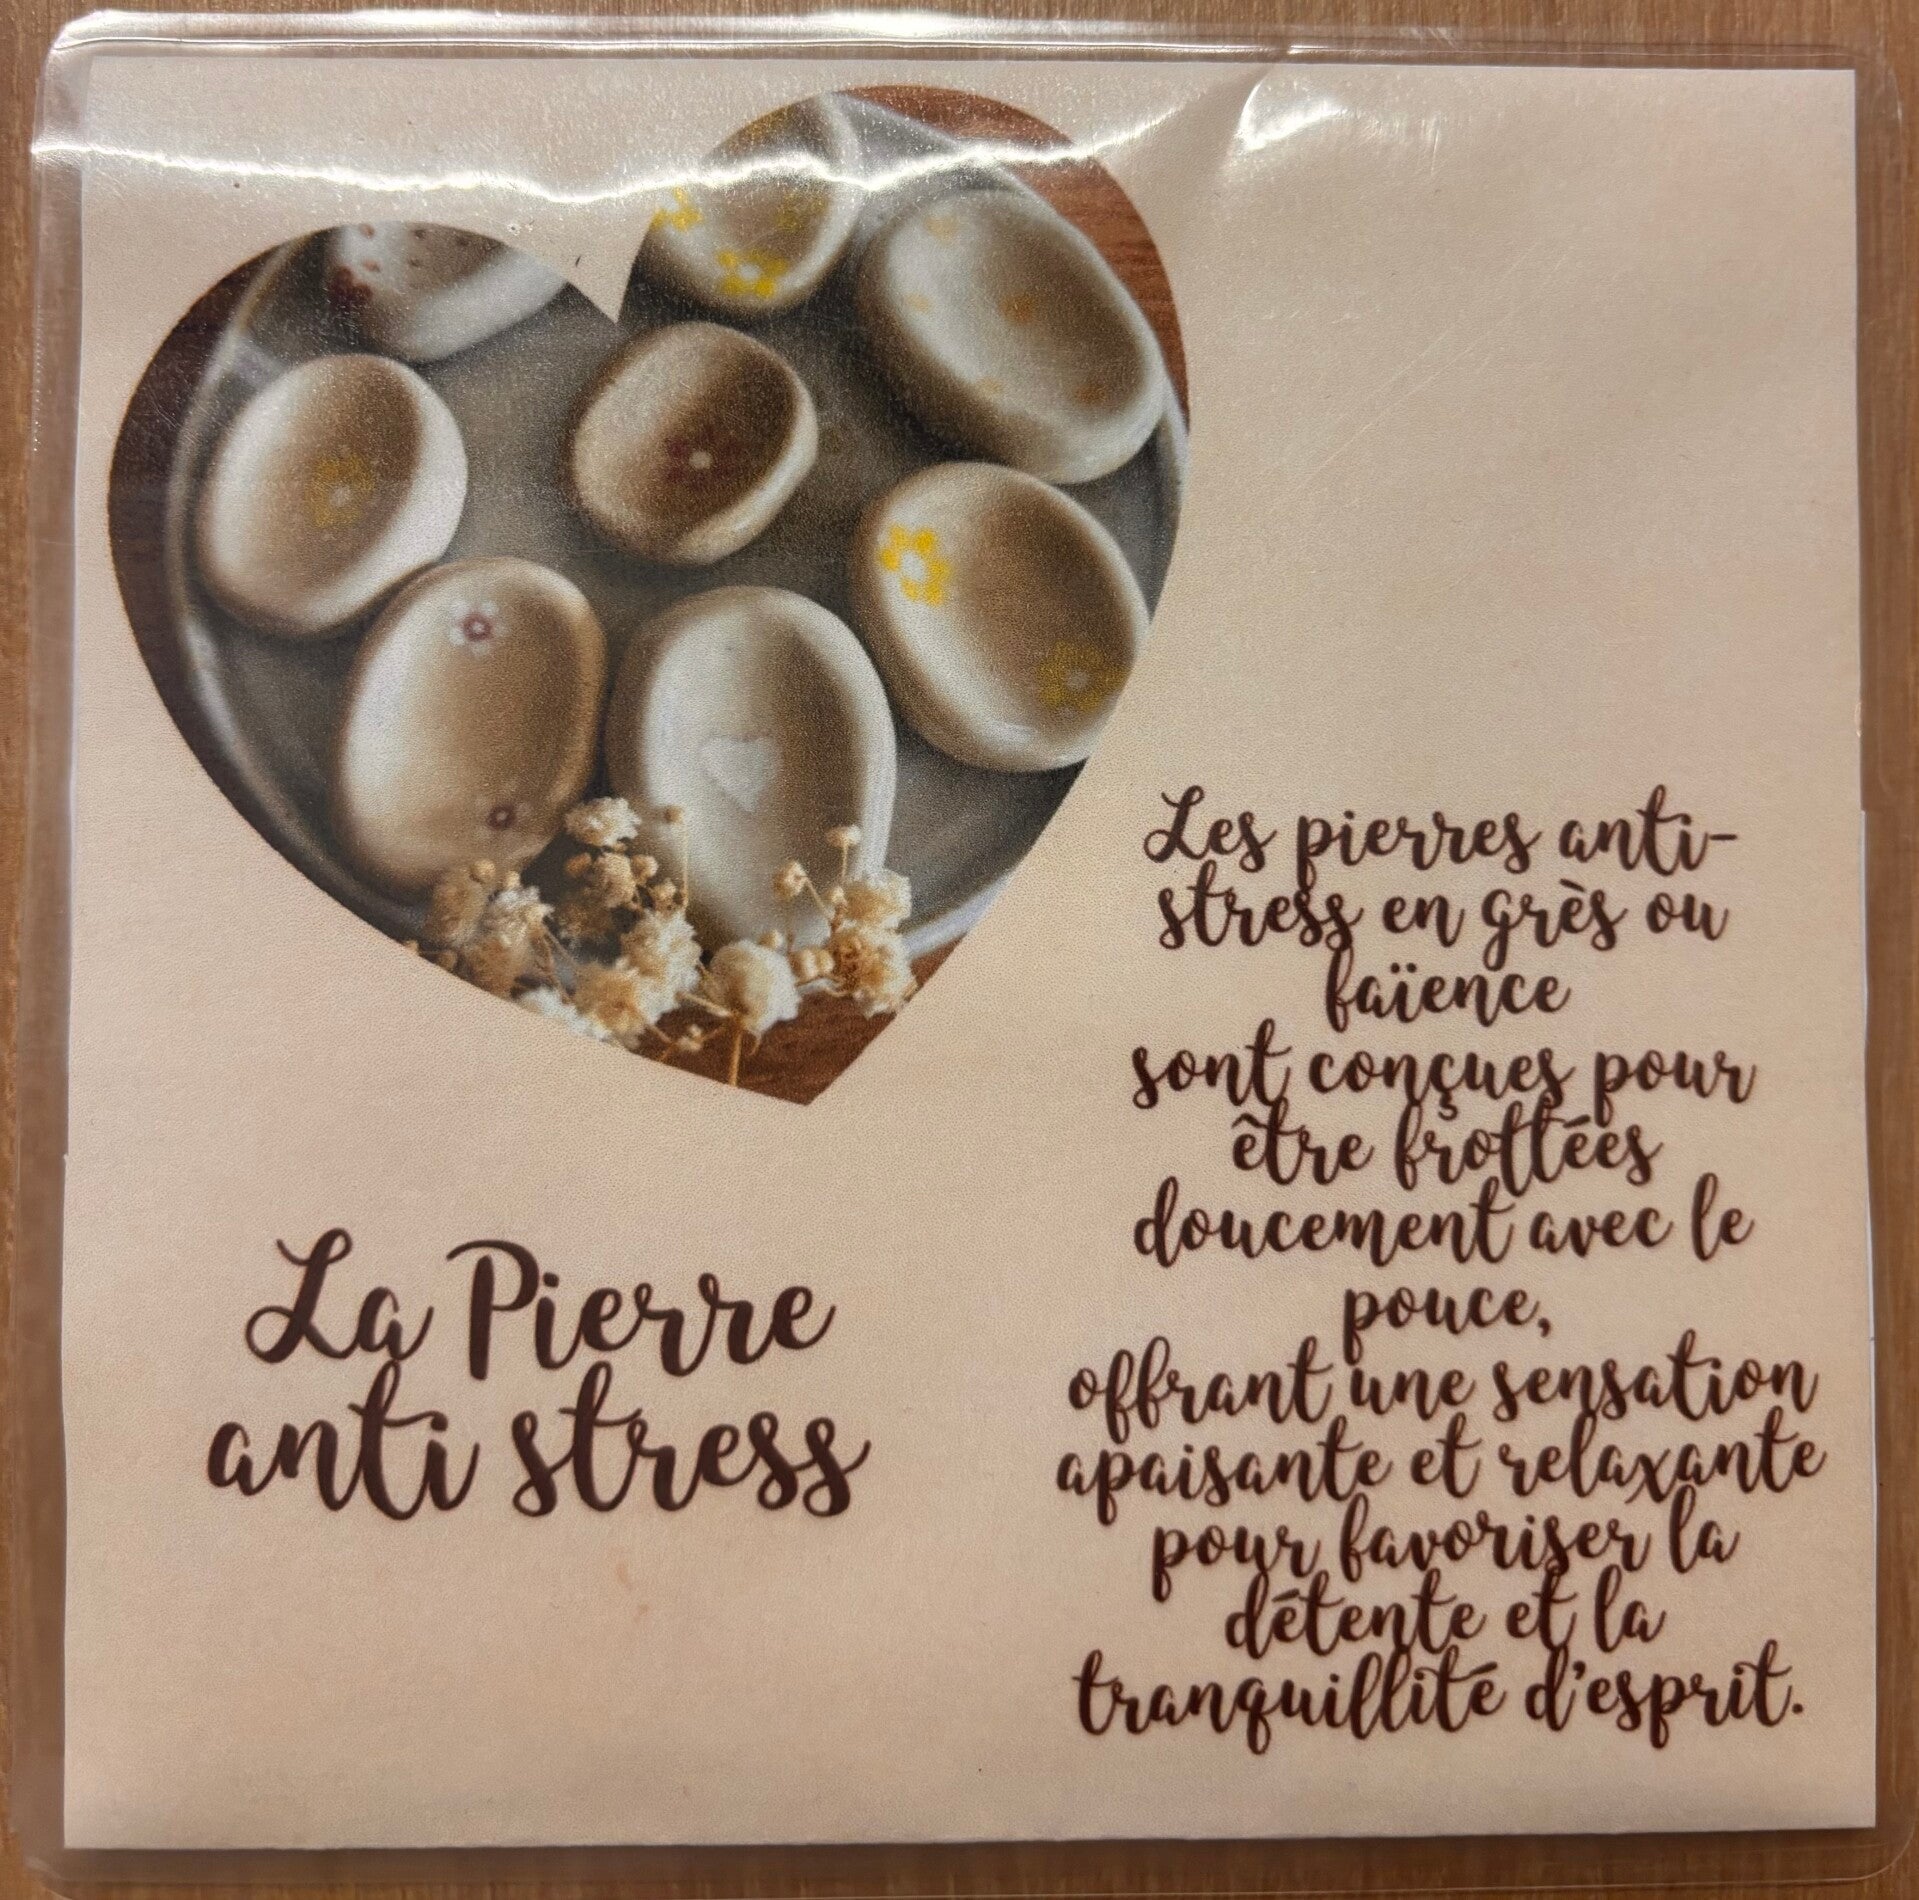 La Pierre
anti stress
Les pierres anti-
stress en grès ou
faïence
sont conçues pour
être frottées
doucement avec le
pouce,
offrant une sensation
apaisante et relaxante
pour favoriser la
détente et la
tranquillité d'esprit.